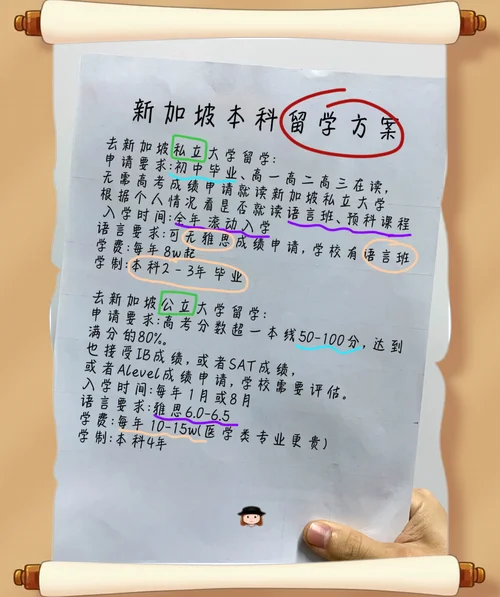 新加坡本科留学方案
去新加坡私立大学留学:
申请要求:初中毕业、高一高二高三在读,
无需高考成绩申请就读新加坡私立大学
根据个人情况看是否就读语言班、预科课程
入学时间:全年滚动入学
语言要求:可无雅思成绩申请,学校有语言班
学费:每年8w起
学制:本科2-3年毕业
去新加坡公立大学留学:
申请要求:高考分数超一本线50-100分,达到
满分的80%。
也接受IB成绩,或者SAT成绩,
或者Alevel成绩申请,学校需要评估。
入学时间:每年1月或8月
语言要求:雅思6.0-6.5
学费:每年10-15w(医学类专业更贵)
学制:本科4年